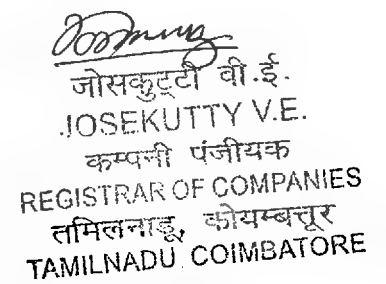 जोसकुट्टी वी.ई.
JOSEKUTTY V.E.
कम्पनी पंजीयक
REGISTRAR OF COMPANIES
तमिलनाडू, कोयम्बत्तूर
TAMILNADU COIMBATORE